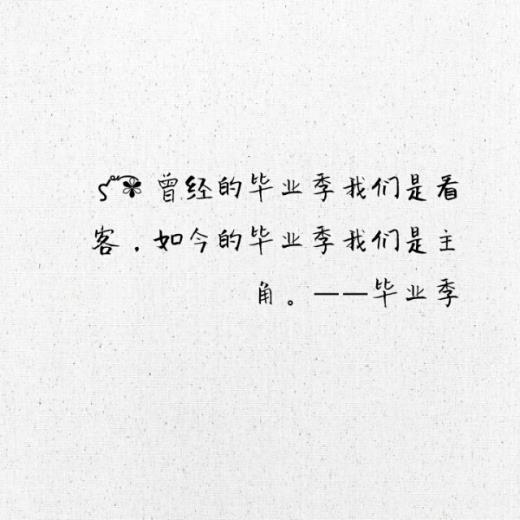 曾经的毕业季我们是看
客，如今的毕业季我们是主
角。——毕业季